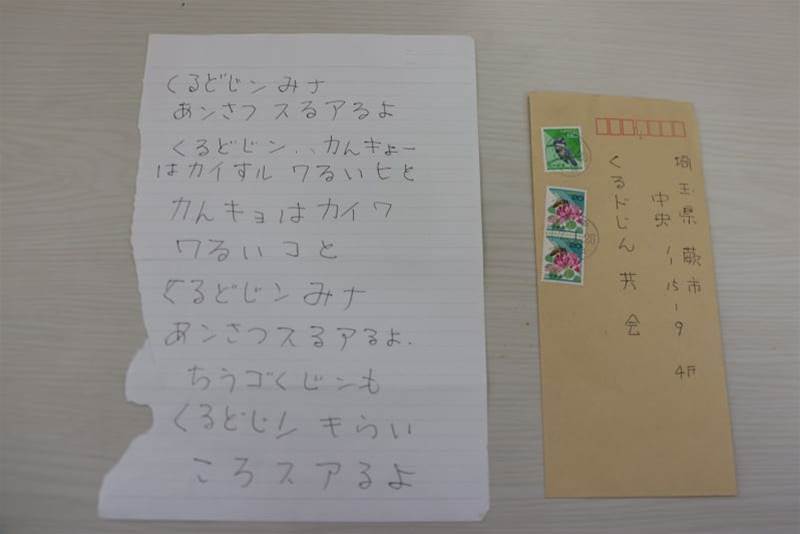 くるどじン みナ
あンさつ スるアるよ
くるどじン 、、カんキョー
はカイすル ワるいヒと
カんキョはカイワ
ワるいコと
くるどじン みナ
あンさつスるアるよ.
ちうゴくじンも
くるどじン キらい
ころスアるよ
埼玉県 蕨市
中央 1-15-9 4F
くるドじん 共会